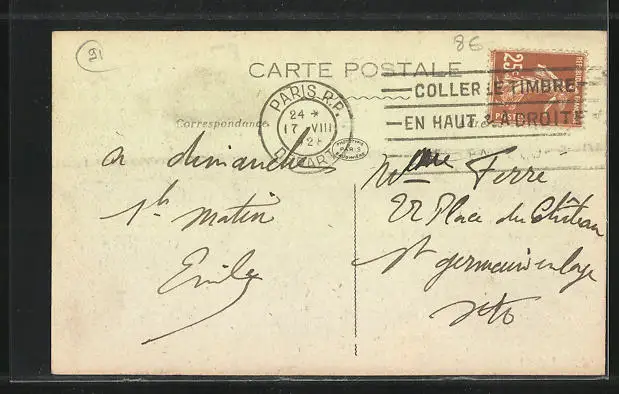 91
86
CARTE POSTALE
Correspondance
PARIS R.P.
24 *
17 VIII
28
DEPART
COLLER LE TIMBRE
EN HAUT & A DROITE
25c
POSTES
PARIS
a dimanche
1h matin
Emile
Mme Ferre
22 Place du Château
St germain en laye